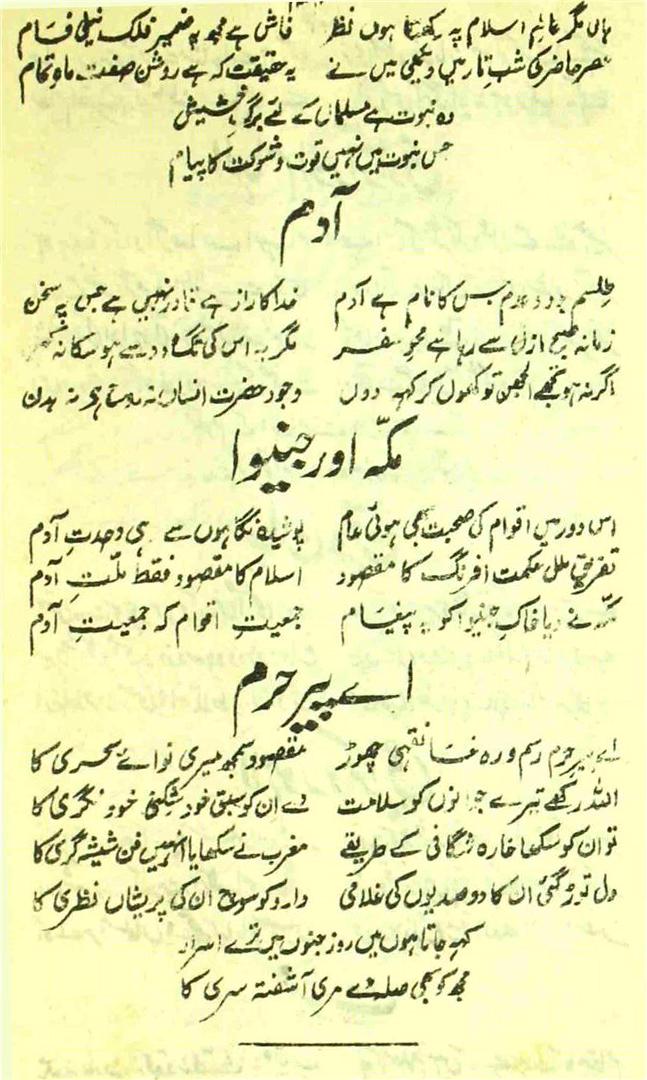 ہاں مگر عالمِ اسلام پہ رکھتا ہوں نظر فاش ہے مجھ پہ ضمیرِ فلکِ نیلی فام
عصرِ حاضر کی شبِ تار میں دیکھی میں نے یہ حقیقت کہ ہے روشن صفتِ ماہِ تمام
وہ نبوت ہے مسلماں کے لئے برگِ حشیش
جس نبوت میں نہیں قوت و شوکت کا پیام
آدم
طلسمِ بود و عدم جس کا نام ہے آدم خدا کا راز ہے قادر نہیں ہے جس پہ سخن
زمانہ صبحِ ازل سے رہا ہے محوِ سفر مگر یہ اس کی تگ و دو سے ہو سکا نہ کہن
اگر نہ ہو تجھے الجھن تو کھول کر کہہ دوں وجودِ حضرتِ انساں نہ روح ہے نہ بدن
مکہ اور جنیوا
اس دور میں اقوام کی صحبت بھی ہوئی عام پوشیدہ نگاہوں سے رہی وحدتِ آدم
تفریقِ ملل حکمتِ افرنگ کا مقصود اسلام کا مقصود فقط ملّتِ آدم
مکّہ نے دیا خاکِ جنیوا کو یہ پیغام جمعیتِ اقوام کہ جمعیتِ آدم
اے پیرِ حرم
اے پیرِ حرم رسم و رہِ خانقہی چھوڑ مقصود سمجھ میری نوائے سحری کا
اللہ رکھے تیرے جوانوں کو سلامت دے ان کو سبق خود شکنی خود نگری کا
تو ان کو سکھا خارہ شگافی کے طریقے مغرب نے سکھایا انہیں فن شیشہ گری کا
دل توڑ گئی ان کا دو صدیوں کی غلامی دارو کو سوچ ان کی پریشاں نظری کا
کہہ جاتا ہوں میں روزِ جنوں میں ترے اسرار
مجھ کو بھی صلہ دے مری آشفتہ سری کا